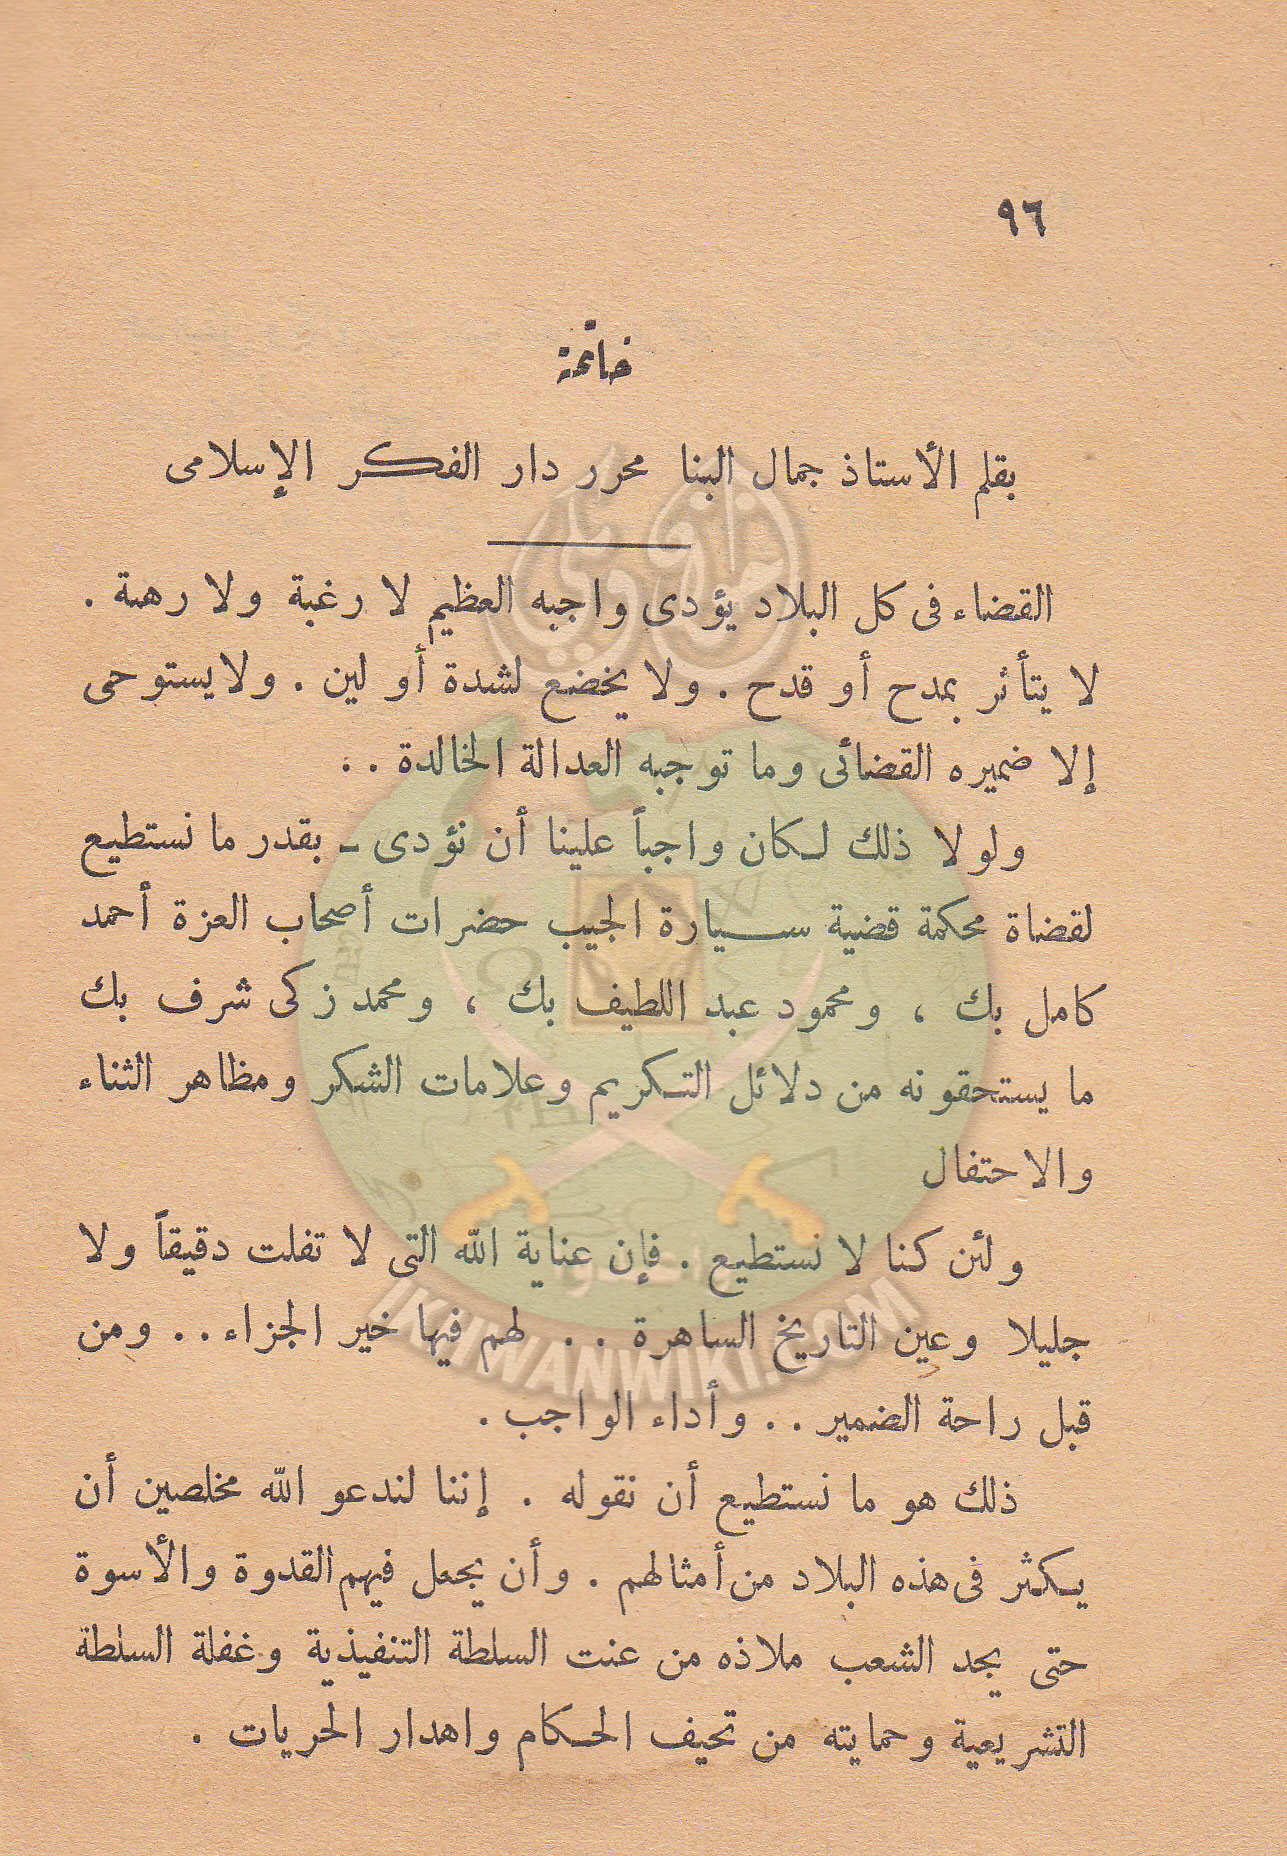 ٩٦
خاتمة
بقلم الأستاذ جمال البنا محرر دار الفكر الإسلامى
القضاء فى كل البلاد يؤدى واجبه العظيم لا رغبة ولا رهبة .
لا يتأثر بمدح أو قدح . ولا يخضع لشدة أو لين . ولا يستوحى
إلا ضميره القضائى وما توجبه العدالة الخالدة . .
ولولا ذلك لكان واجباً علينا أن نؤدى ـ بقدر ما نستطيع
لقضاة محكمة قضية سيارة الجيب حضرات أصحاب العزة أحمد
كامل بك ، ومحمود عبد اللطيف بك ، ومحمد زكى شرف بك
ما يستحقونه من دلائل التكريم وعلامات الشكر ومظاهر الثناء
والاحتفال
ولئن كنا لا نستطيع . فإن عناية الله التى لا تفلت دقيقاً ولا
جليلا وعين التاريخ الساهرة . . لهم فيها خير الجزاء . . ومن
قبل راحة الضمير . . وأداء الواجب .
ذلك هو ما نستطيع أن نقوله . إننا لندعو الله مخلصين أن
يكثر فى هذه البلاد من أمثالهم . وأن يجعل فيهم القدوة والأسوة
حتى يجد الشعب ملاذه من عنت السلطة التنفيذية وغفلة السلطة
التشريعية وحمايته من تحيف الحكام واهدار الحريات .
إخوان ويكي
IKHWANWIKI.COM